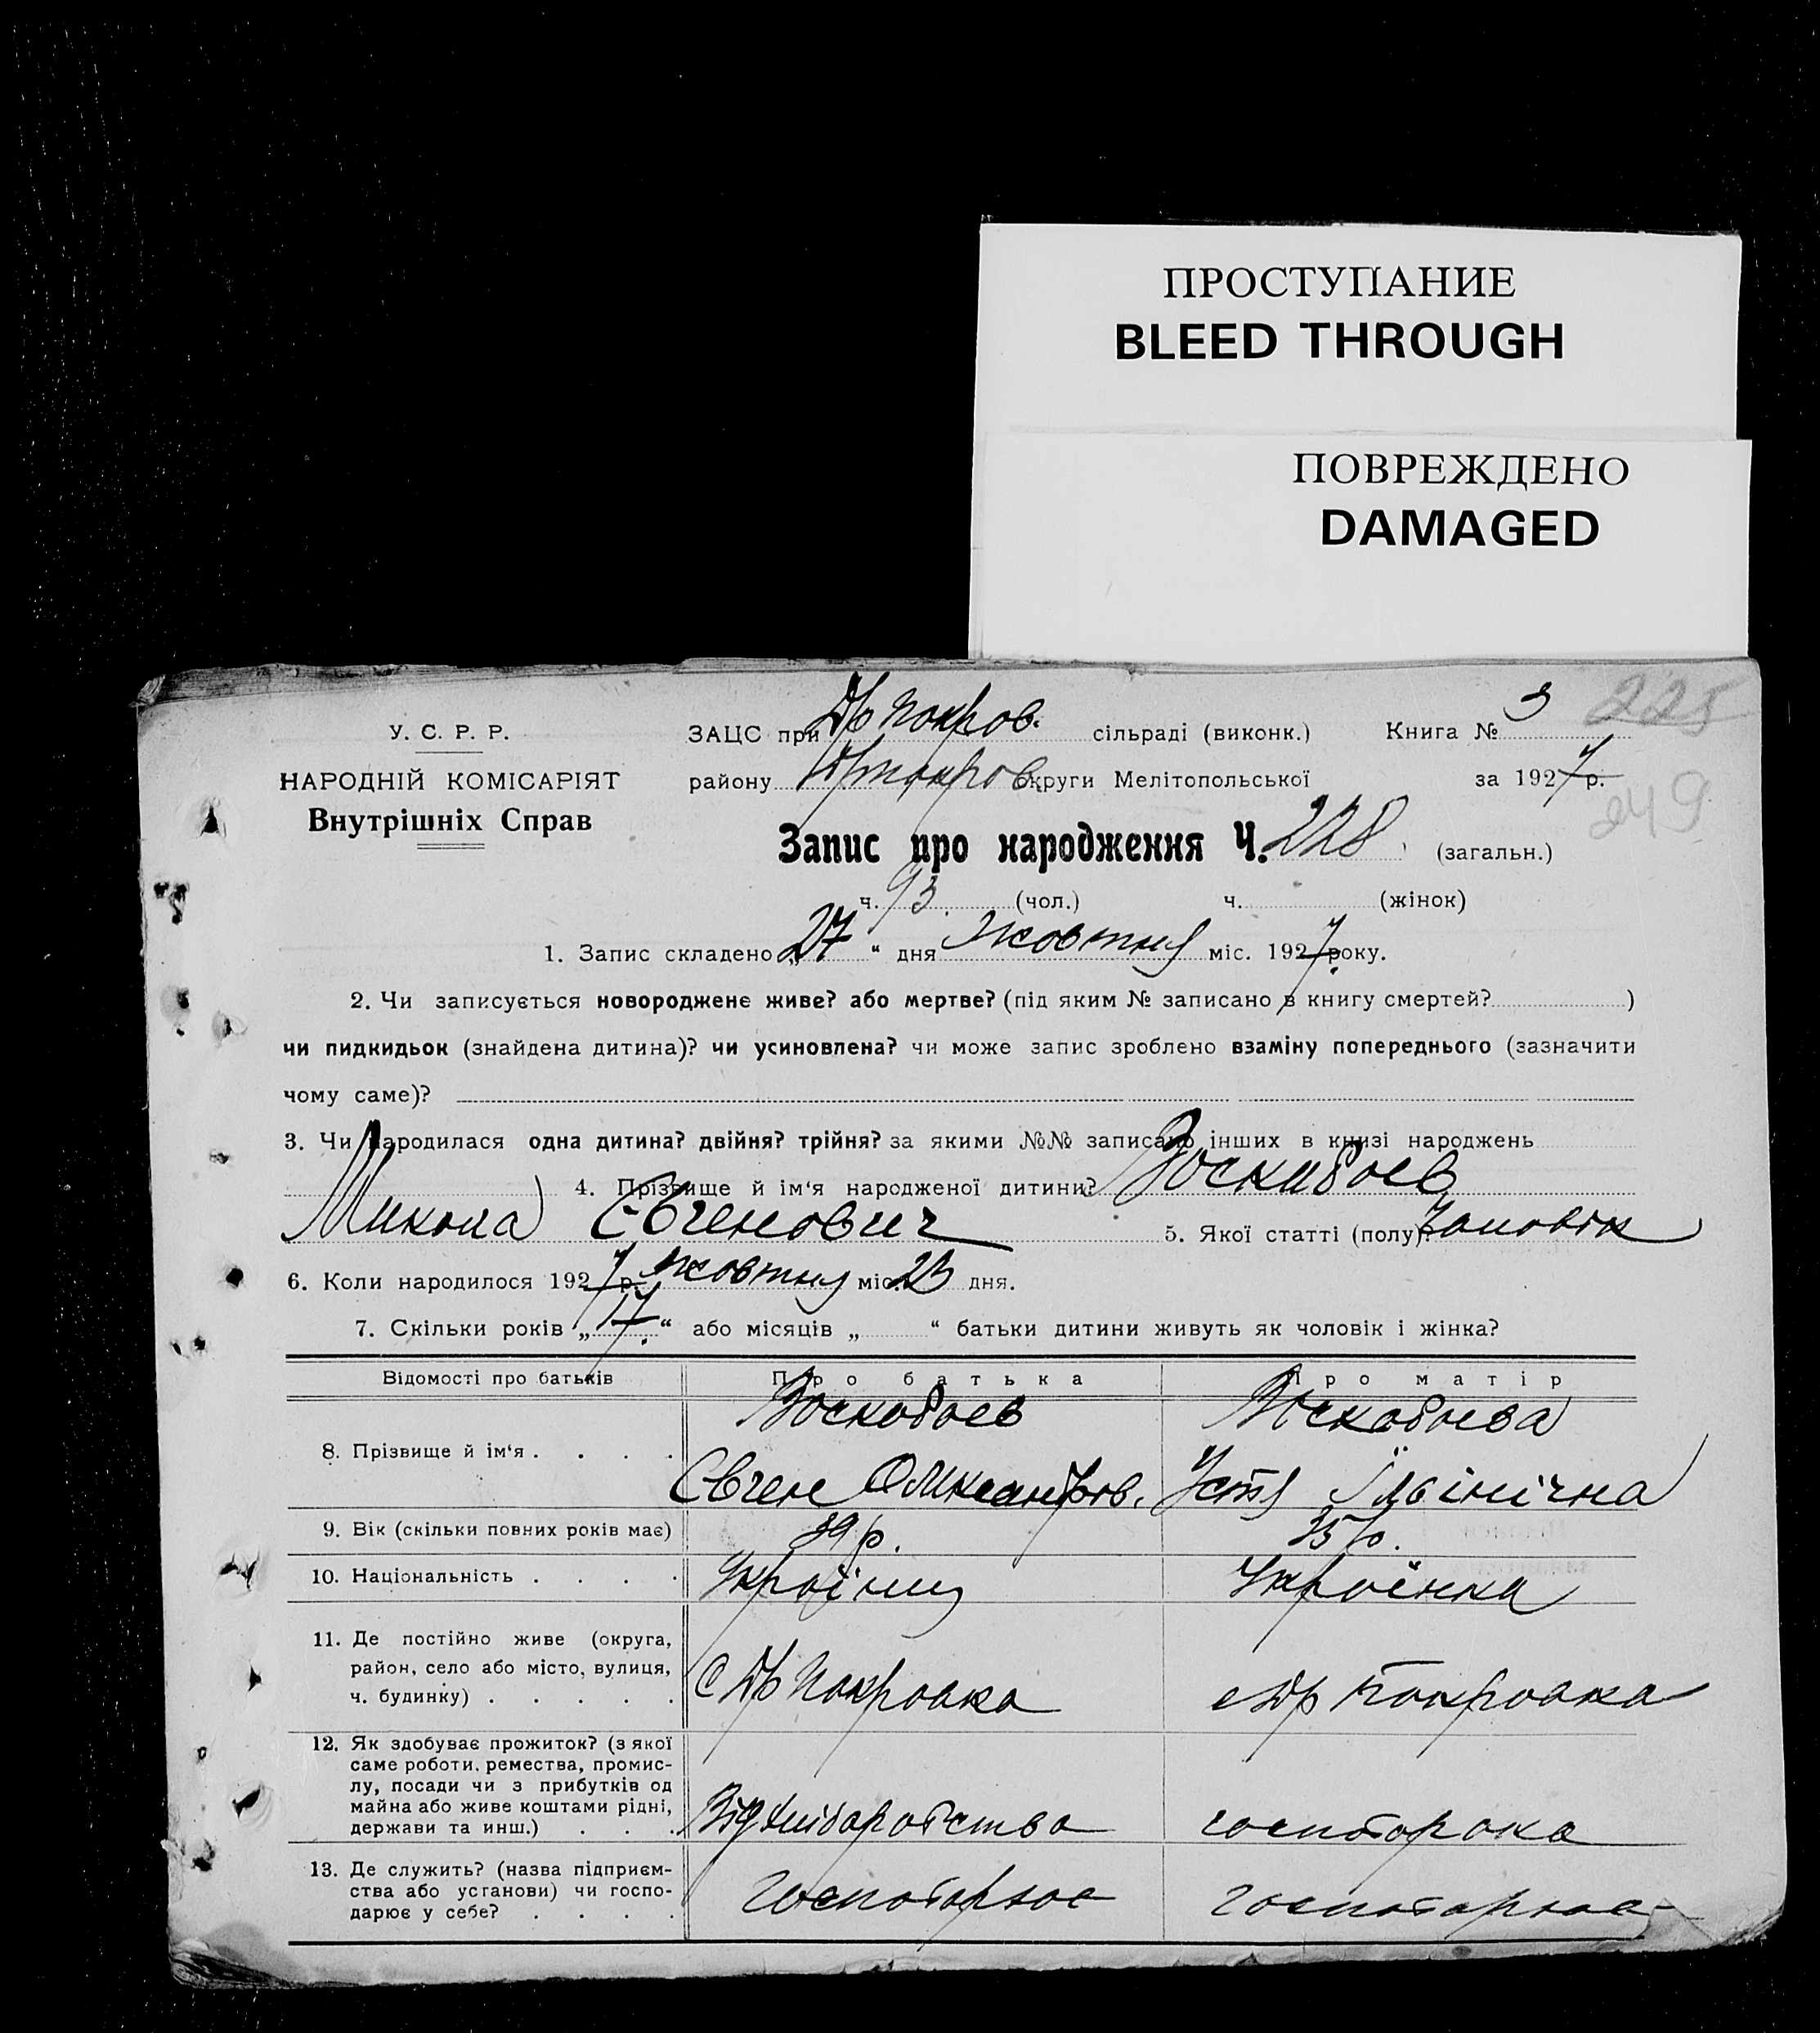 ПРОСТУПАНИЕ
BLEED THROUGH
ПОВРЕЖДЕНО
DAMAGED
У. С. Р. Р.
НАРОДНІЙ КОМІСАРІЯТ
Внутрішніх Справ
ЗАЦС при Др Покров. сільраді (виконк.) Книга № 3 225
району округи Мелітопольської за 1927 р.
249
Запис про народження Ч. 228 (загальн.)
ч. 93 (чол.) ч. (жінок)
1. Запис складено „27“ дня жовтня міс. 1927 року.
2. Чи записується новороджене живе? або мертве? (під яким № записано в книгу смертей? )
чи пидкидьок (знайдена дитина)? чи усиновлена? чи може запис зроблено взаміну попереднього (зазначити
чому саме)?
3. Чи народилася одна дитина? двійня? трійня? за якими №№ записано інших в книзі народжень
4. Прізвище й ім‘я народженої дитини? Воскобоев
Микола Євгенович 5. Якої статті (полу)? Чоловік
6. Коли народилося 1927 р. жовтня міс. 23 дня.
7. Скільки років „17.“ або місяців „ “ батьки дитини живуть як чоловік і жінка?
Відомості про батьків Про батька Про матір
8. Прізвище й ім‘я . . . . Воскобоев Воскобоева
Євген Олександров. Устя Ільінічна
9. Вік (скільки повних років має) 39 р. 35 р.
10. Національність . . . . Українец Українка
11. Де постійно живе (округа,
район, село або місто, вулиця,
ч. будинку) . . . . . С Др Покровка с Др Покровка
12. Як здобуває прожиток? (з якої
саме роботи, ремества, промис-
лу, посади чи з прибутків од
майна або живе коштами рідні,
держави та инш.) . . . Від хліборобства
13. Де служить? (назва підприєм-
ства або установи) чи госпо-
дарює у себе? . . . . господарює господарює